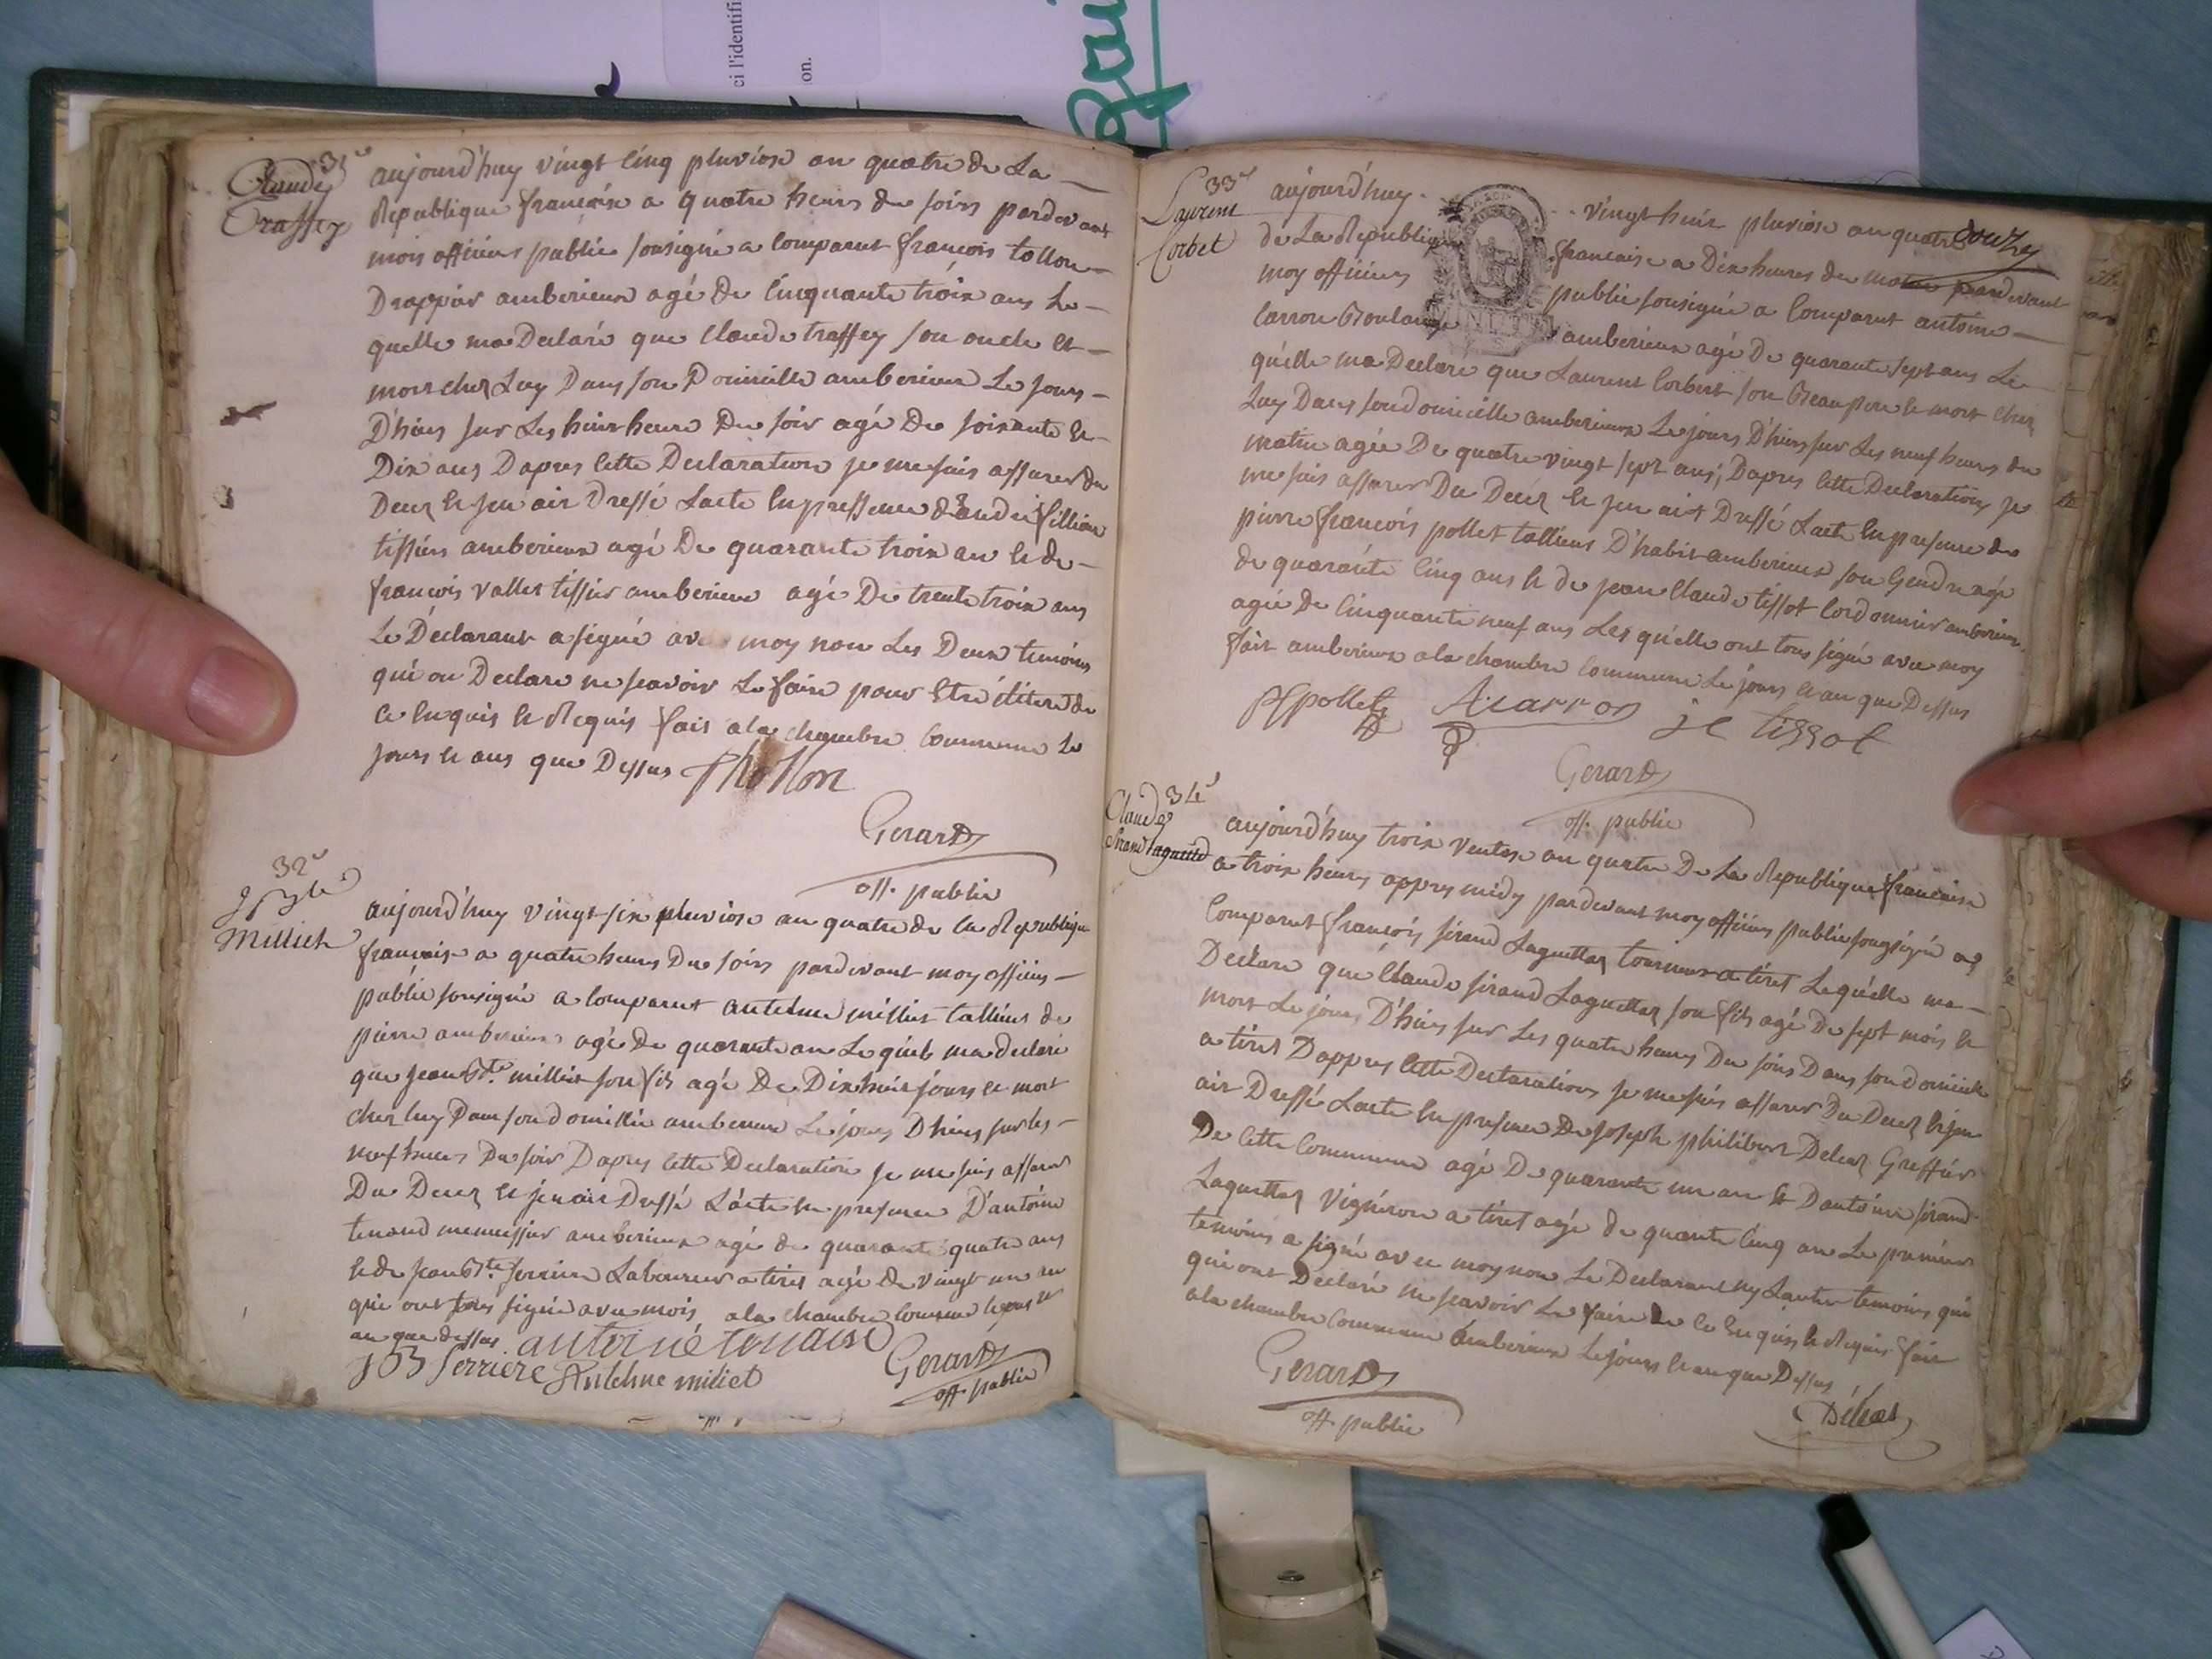 ci l'identifi
on.
31e
Claude
Traffey
aujourd'huy vingt cinq pluviose an quatre de La
Republique francaise a quatre heurs du soirs pardevant
mois officiers public sousigné a comparut francois tollon
Drappier amberieux agé De Cinquante troix ans Le
quelle ma Declaré que Claude traffey son oncle et
mort chez Luy Dans son Domicille amberieux Le jours
D'hiers sur Les huit heure Du soir agé De soixante et
Dix ans Dapres cette Declaration je me suis assurer du
Decez et jen ait Dressé Lacte en pressence d'andré fillion
tissiers amberieux agé De quarante troix an et de
francois vallet tissier amberieux agé De trente troix ans
Le Déclarant a signé avec moy non Les Deux temoins
qui on Declare ne scavoir Le faire pour
ce enquis et Requis fait a la chambre Commune Le
jours et ans que Dessus fhollon
Gerard
off. public
32e
Millieh
aujourd'huy vingt six pluviose an quatre de la Republique
francaise a quatre heures Du soirs pardevant moy officiers
public sousigné a comparut antelme milliet talliéurs de
pierre amberieux agé de quarante an Le quelle ma declaré
que jean Bte milliet son fils agé De Dix huit jours et mort
chez luy Dans son domicilie amberieux Le jours D'hiers sur les
neuf heures Du soir Dapres cette Declaration je me suis assurer
Du Decez et jen ait Dressé Lácte en presence D'antoine
tenand menuissier amberieux agé de quarante quatre ans
et de jean Bte serriere Laboureur a tiret agé de vingt un an
qui ont tous signé avec mois a la chambre Comune le jours et
an que dessus antoine tenand
JB serriere Antelme miliet
Gerard
off. public
33e
Laurent
Corbet
Douzey
aujourd'huy vingt huit pluviose an quatre
de La Republique francaise a Dix heures du matin pardevant
moy officiers public sousigné a Comparut antoine
Carron Boulanger amberieux agé De quarante sept ans Le
quelle ma Declaré que Laurent Corbert son Beau pere et mort chez
Luy Dans son domicille amberieux Le jours D'hiers sur Les neuf heures du
matin agée De quatre vingt sept ans; Dapres cette Declarations je
me suis assurer Du Decez et jen ait Dressé Lacte en presence de
pierre francois pollet talliéurs D'habit amberieux son Gendre agé
de quarante Cinq ans et de jean Claude tissot Cordonnier amberieux
agée de Cinquante neuf ans Les quelle ont tous signé avec moy
fait amberieux a la chambre commune Le jours et an que Dessus
pfpollet A carron jc tissot
Gerard
off. public
34e
Claude
Sirand laguette
aujourd'huy troix ventose an quatre De La Republique francaise
a troix heures appres midy pardevant moy officiers public sousigné a
Comparut francois sirand Laguettaz tourneur a tiret Lequélle ma
Declaré que Claude sirand Laguettaz son fils agé De sept mois et
mort Le jours D'hiers sur Les quatre heures Du soir Dans son domicile
a tiret Dappres cette Declarations je me suis assurer Du Decez et jen
ait Dressé Lacte en presence De joseph philibert Delcar Greffier
De cette Commune agé De quarante un an et D'antoine sirand
Laguettaz vigneron a tiret agé de quarante Cinq an Le premier
temoins a signé avec moy non Le Declarant ny Lautre temoins qui
qui ont Declaré ne scavoir Le faire De ce Enquis et Requis fait
a la chambre Commune amberieux Le jours et an que Dessus
Gerard
off. public